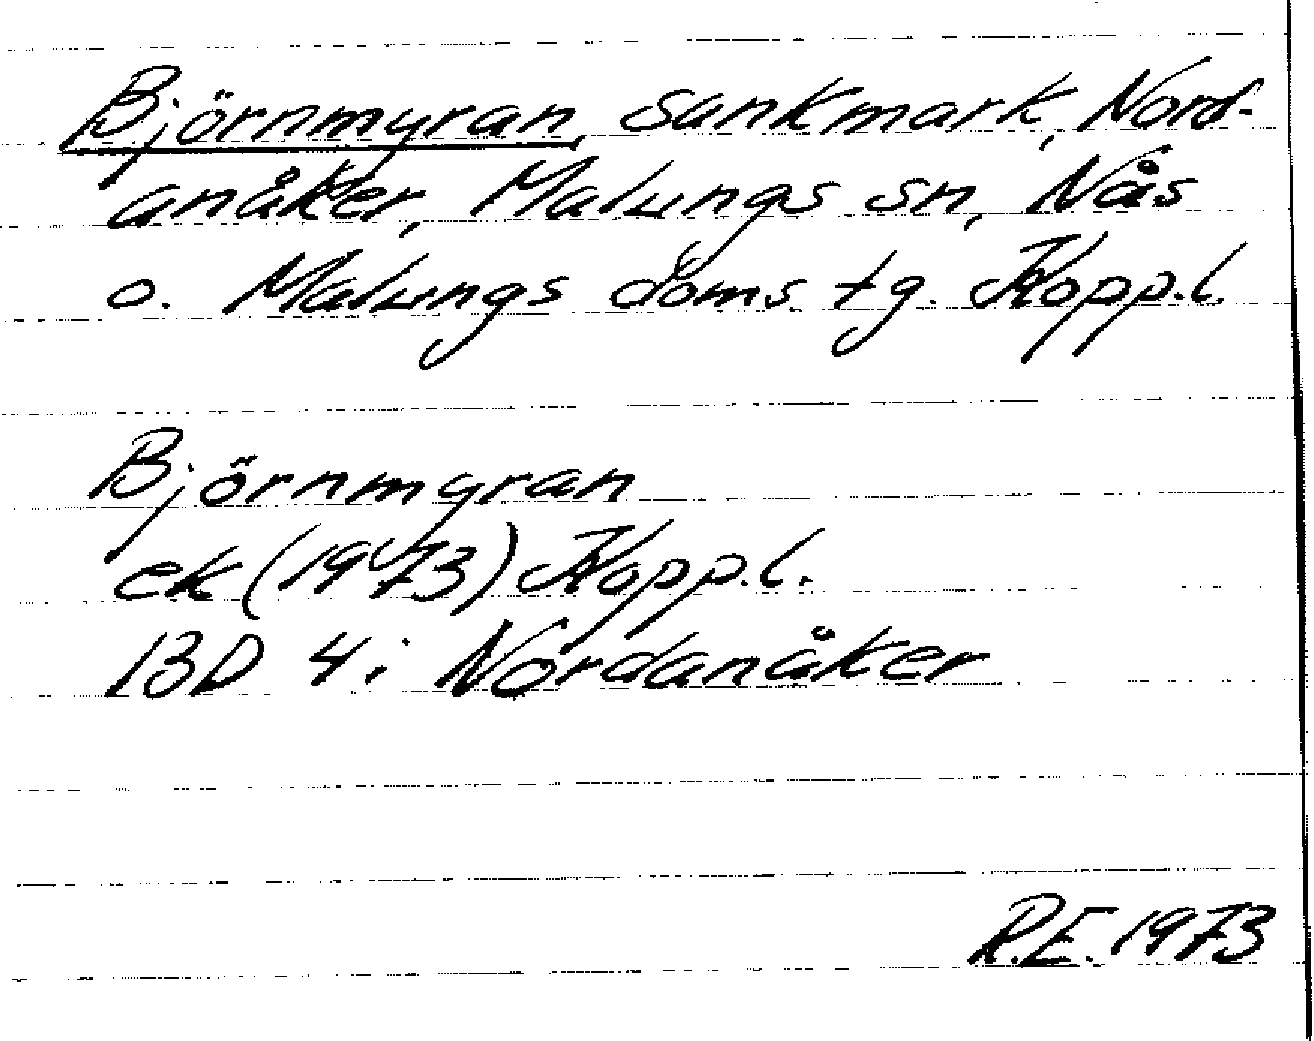 Björnmyran, sankmark, Nord-
anåker, Malungs sn, Nås
o. Malungs doms. tg. Kopp.l.
Björnmyran
ek (1973) Kopp.l.
13D 4i Nordanåker
R.E. 1973